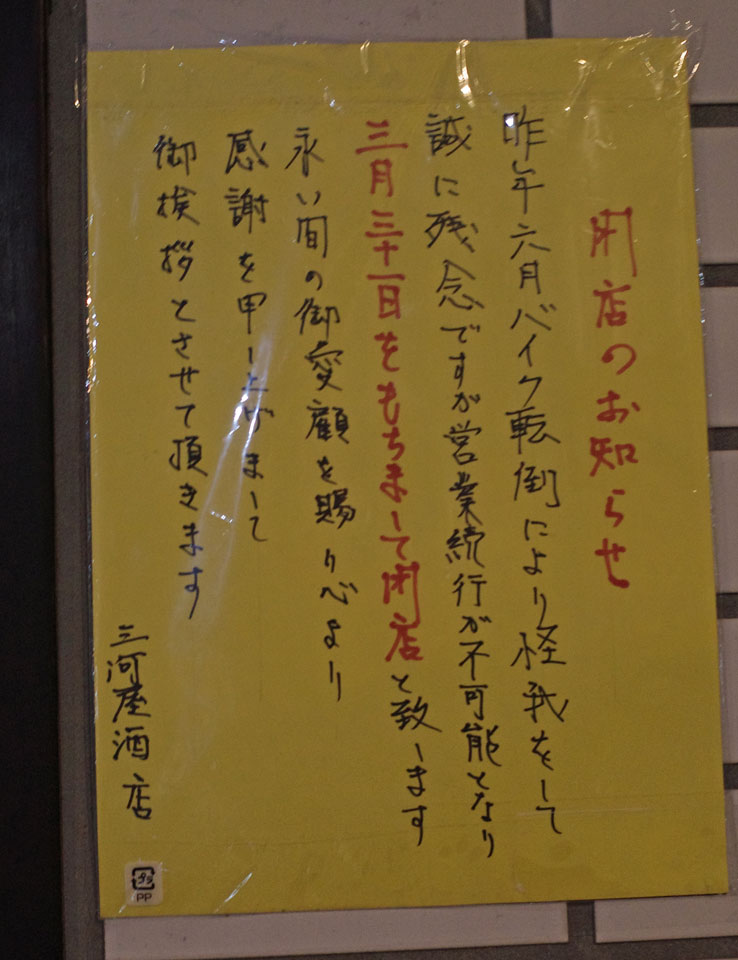 閉店のお知らせ
昨年六月バイク転倒により怪我をして
誠に残念ですが営業続行が不可能となり
三月三十一日をもちまして閉店と致します
永い間の御愛顧を賜り心より
感謝を申し上げまして
御挨拶とさせて頂きます
三河屋酒店
プラ
PP